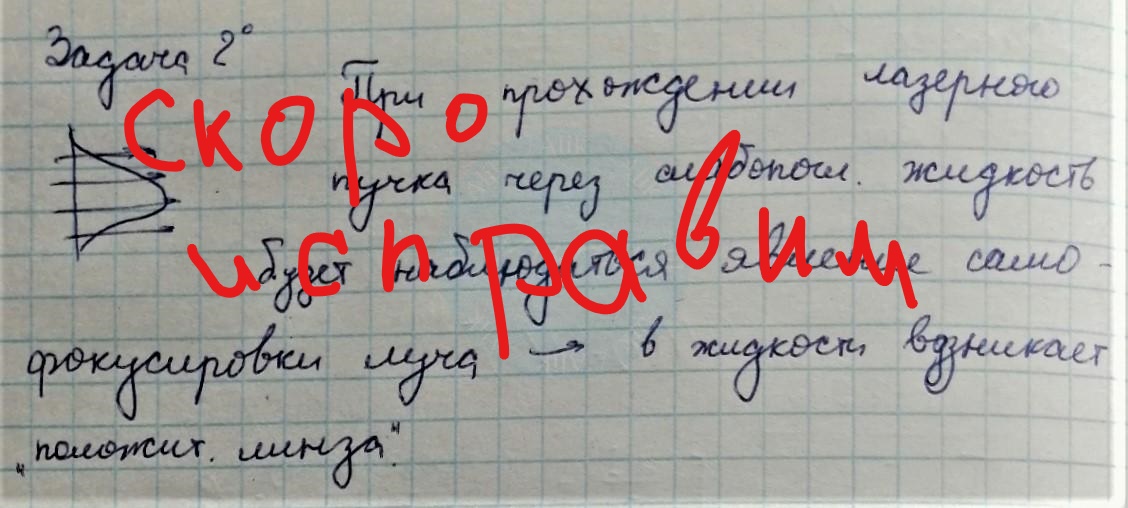 Задача 2°
При прохождении лазерного
скоро
пучка через слабопогл. жидкость
исправим
будет наблюдаться явление само-
фокусировки луча → в жидкости возникает
„положит. линза“.